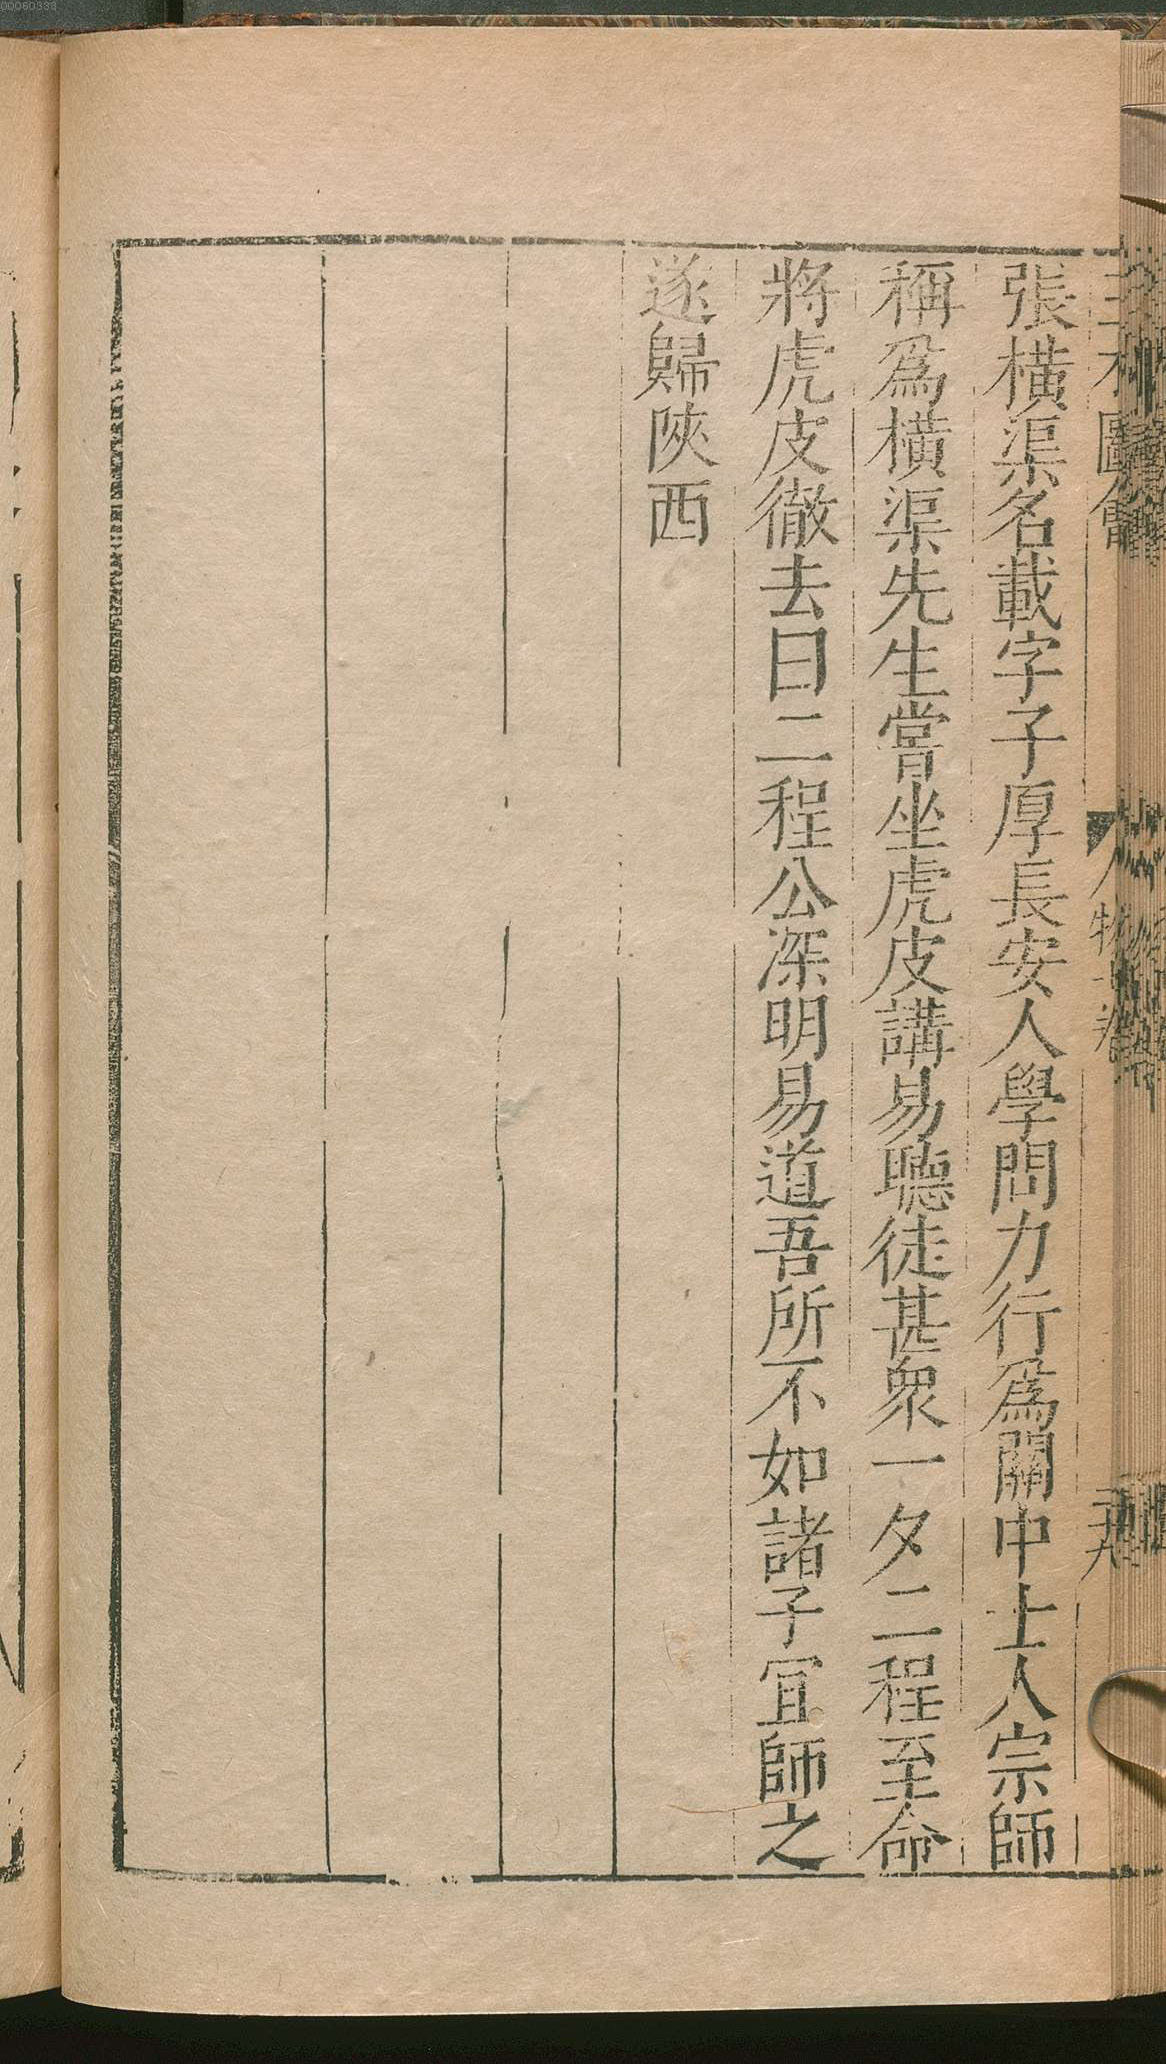 00060333
張橫渠名載字子厚長安人學問力行爲關中士人宗師
稱爲橫渠先生嘗坐虎皮講易聽徒甚衆一夕二程至命
將虎皮徹去曰二程公深明易道吾所不如諸子宜師之
遂歸陝西